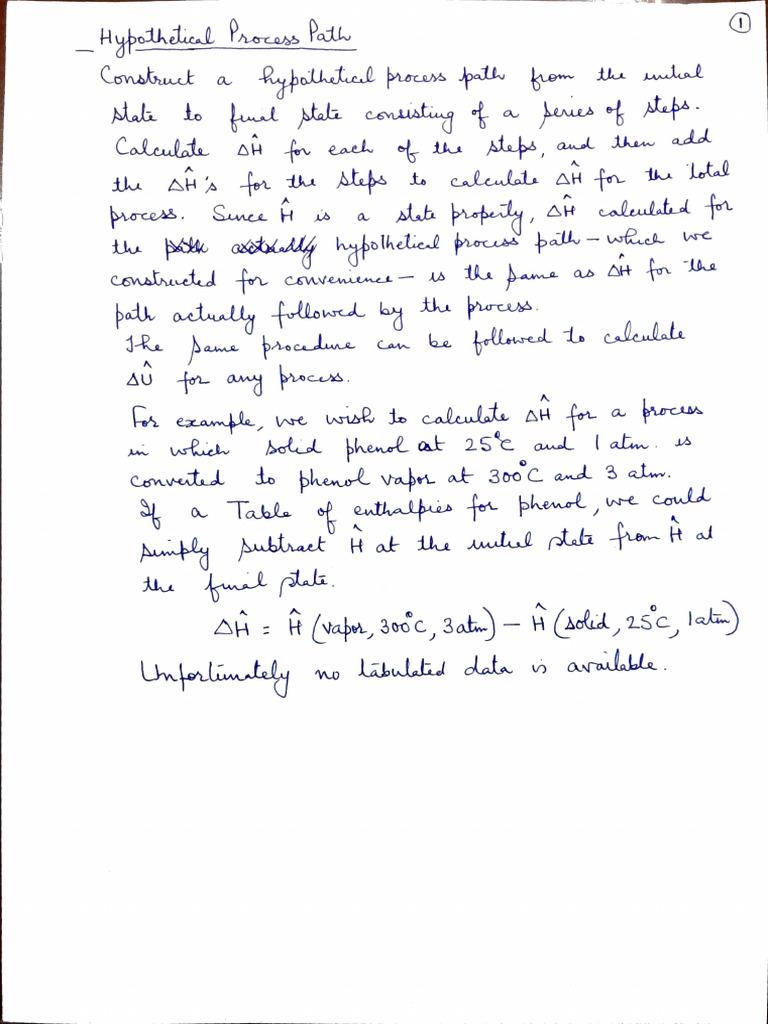 ①
Hypothetical Process Path
Construct a hypothetical process path from the initial
state to final state consisting of a series of steps.
Calculate ΔĤ for each of the steps, and then add
the ΔĤ's for the steps to calculate ΔĤ for the total
process. Since Ĥ is a state property, ΔĤ calculated for
the path actually hypothetical process path – which we
constructed for convenience – is the same as ΔĤ for the
path actually followed by the process.
The same procedure can be followed to calculate
ΔÛ for any process.
For example, we wish to calculate ΔĤ for a process
in which solid phenol at 25°C and 1 atm. is
converted to phenol vapor at 300°C and 3 atm.
If a Table of enthalpies for phenol, we could
simply subtract Ĥ at the initial state from Ĥ at
the final state.
ΔĤ = Ĥ (vapor, 300°C, 3atm) – Ĥ (solid, 25°C, 1atm)
Unfortunately no tabulated data is available.